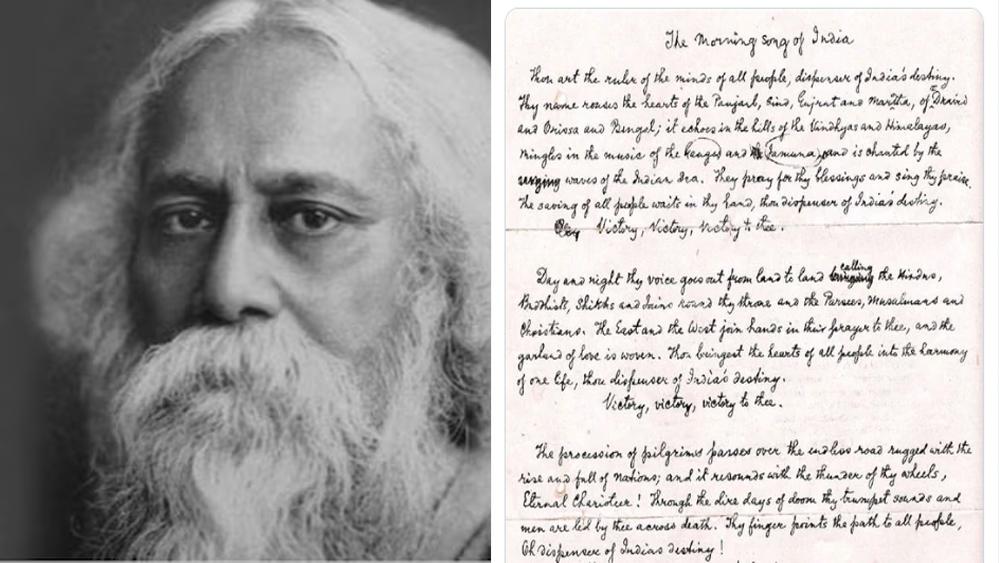 The Morning song of India
Thou art the ruler of the minds of all people, dispenser of India's destiny.
Thy name rouses the hearts of the Panjaub, Sind, Gujrat and Maratha, of Dravid
and Orissa and Bengal; it echoes in the hills of the Vindhyas and Himalayas,
mingles in the music of the Ganges and Jamuna, and is chanted by the
waves of the Indian Sea. They pray for thy blessings and sing thy praise.
The saving of all people waits in thy hand, thou dispenser of India's destiny.
Victory, Victory, Victory to thee.
Day and night thy voice goes out from land to land calling the Hindus,
Buddhists, Shikhs and Jains round thy throne and the Parsees, Musalmans and
Christians. The East and the West join hands in their prayer to thee, and the
garland of love is woven. Thou bringest the hearts of all people into the harmony
of one life, thou dispenser of India's destiny.
Victory, victory, victory to thee.
The procession of pilgrims passes over the endless road rugged with the
rise and fall of Nations; and it resounds with the thunder of thy wheels,
Eternal Charioteer! Through the dire days of doom thy trumpet sounds and
men are led by thee across death. Thy finger points the path to all people,
Oh dispenser of India's destiny!